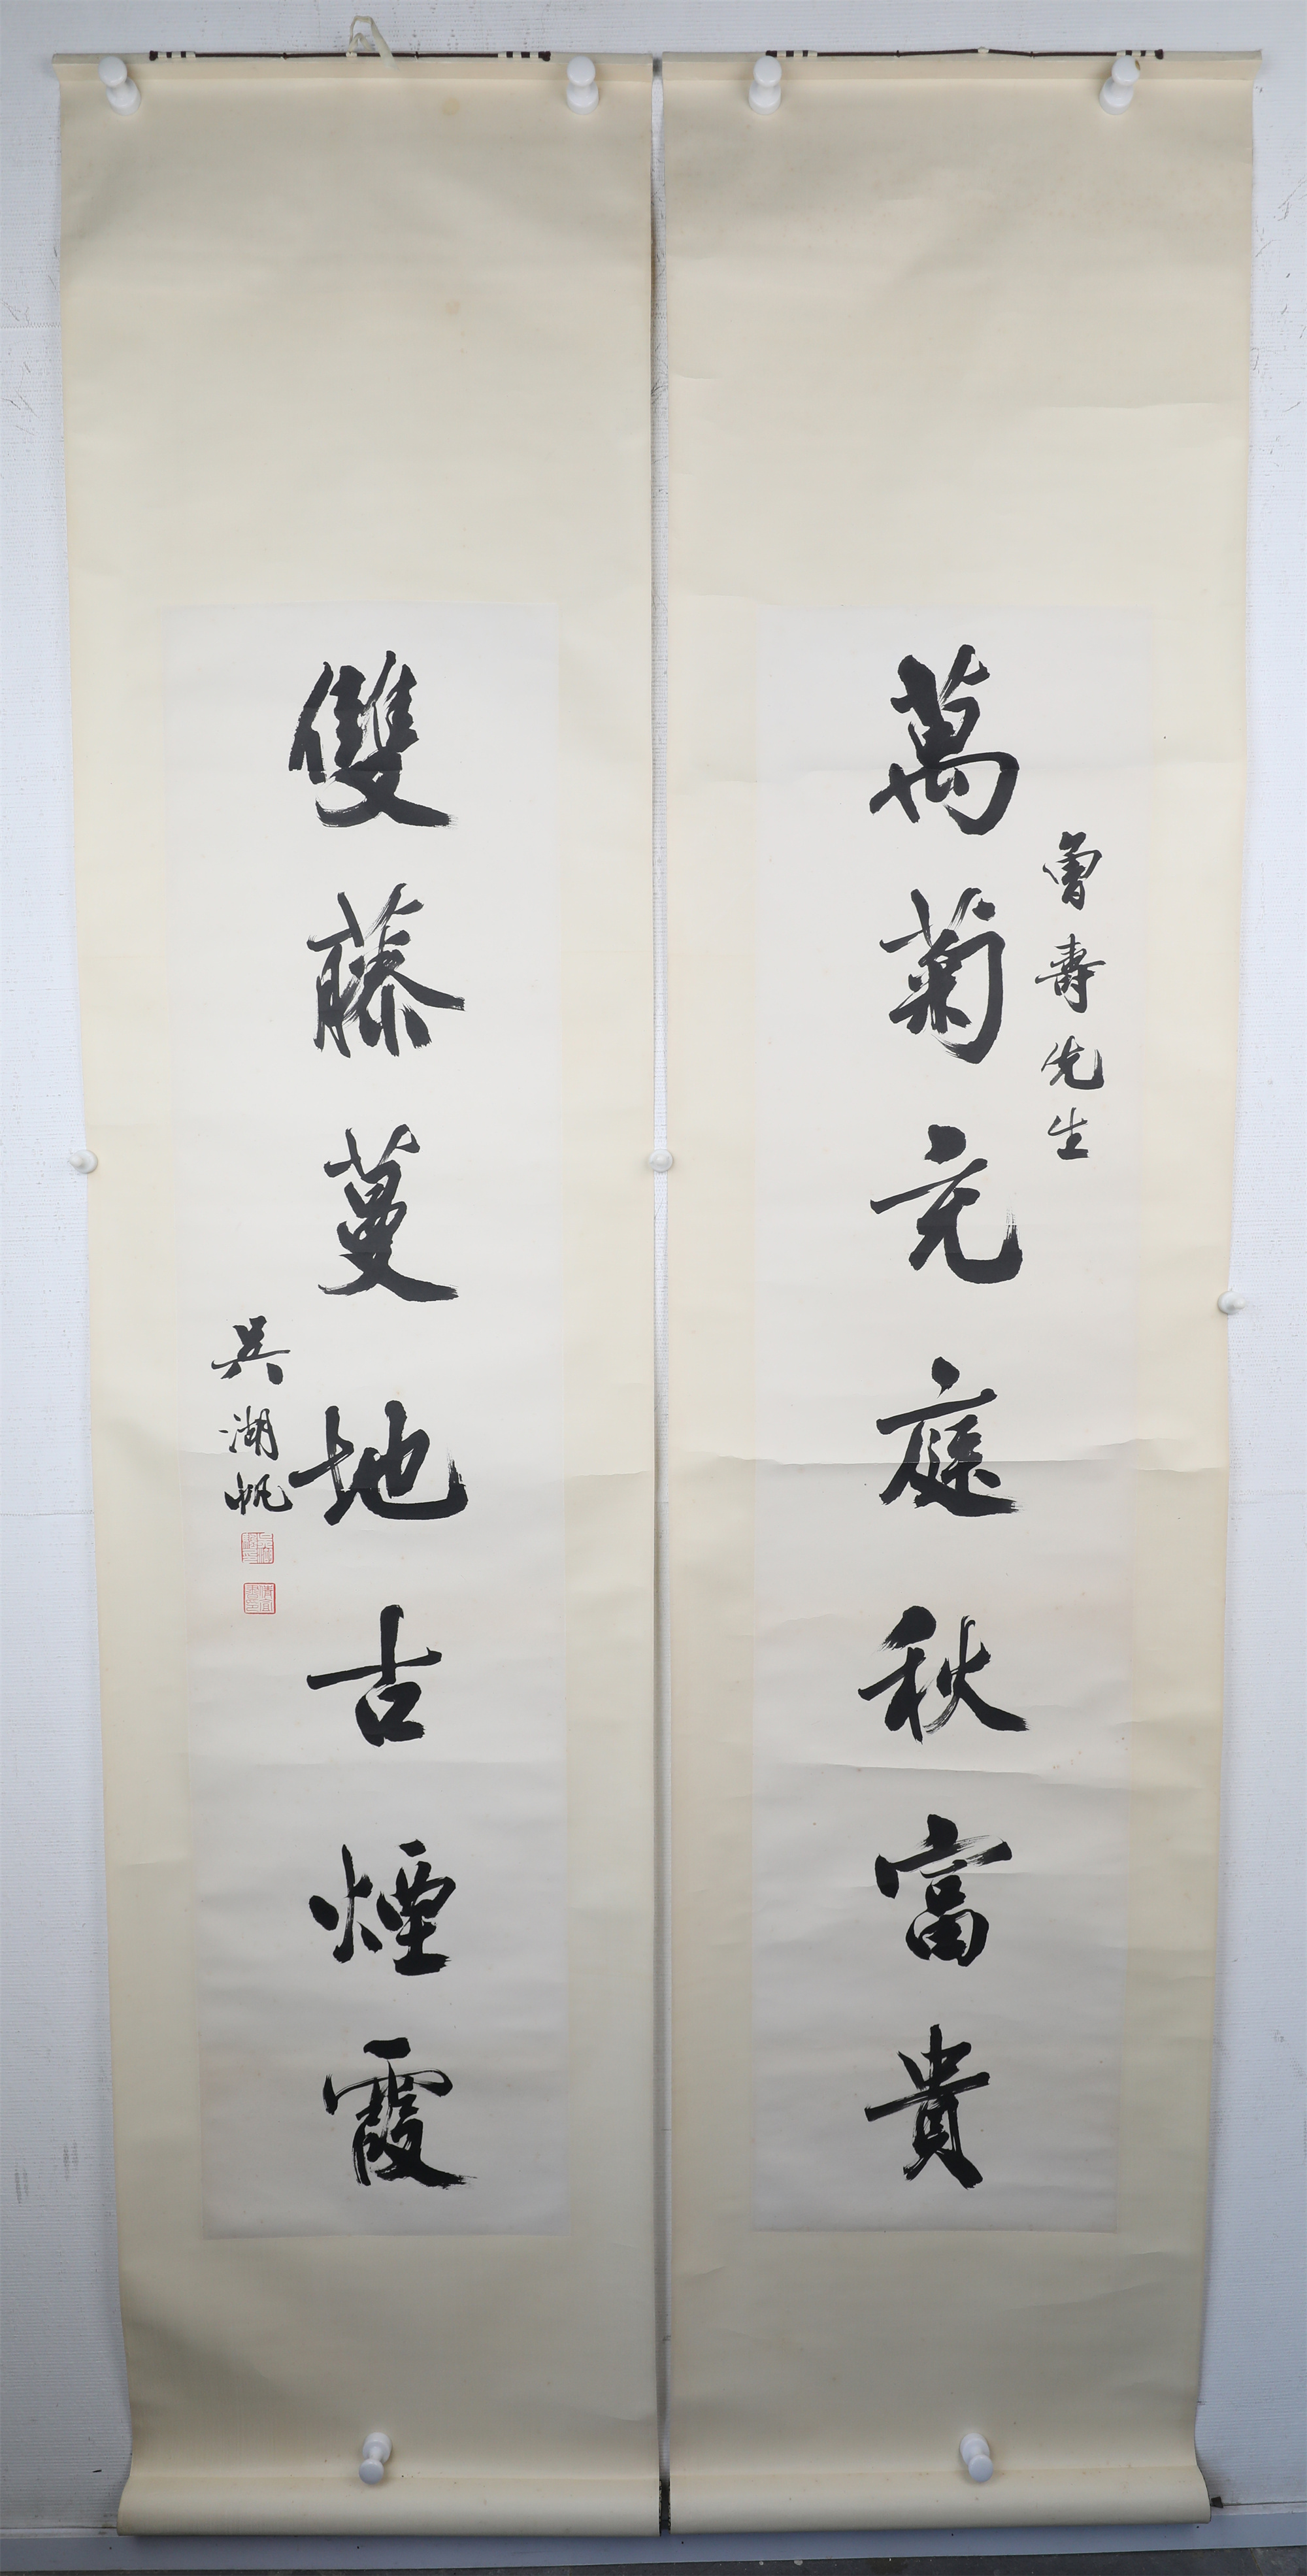 萬菊充庭秋富貴
曾壽先生
雙藤蔓地古煙霞
吳湖帆